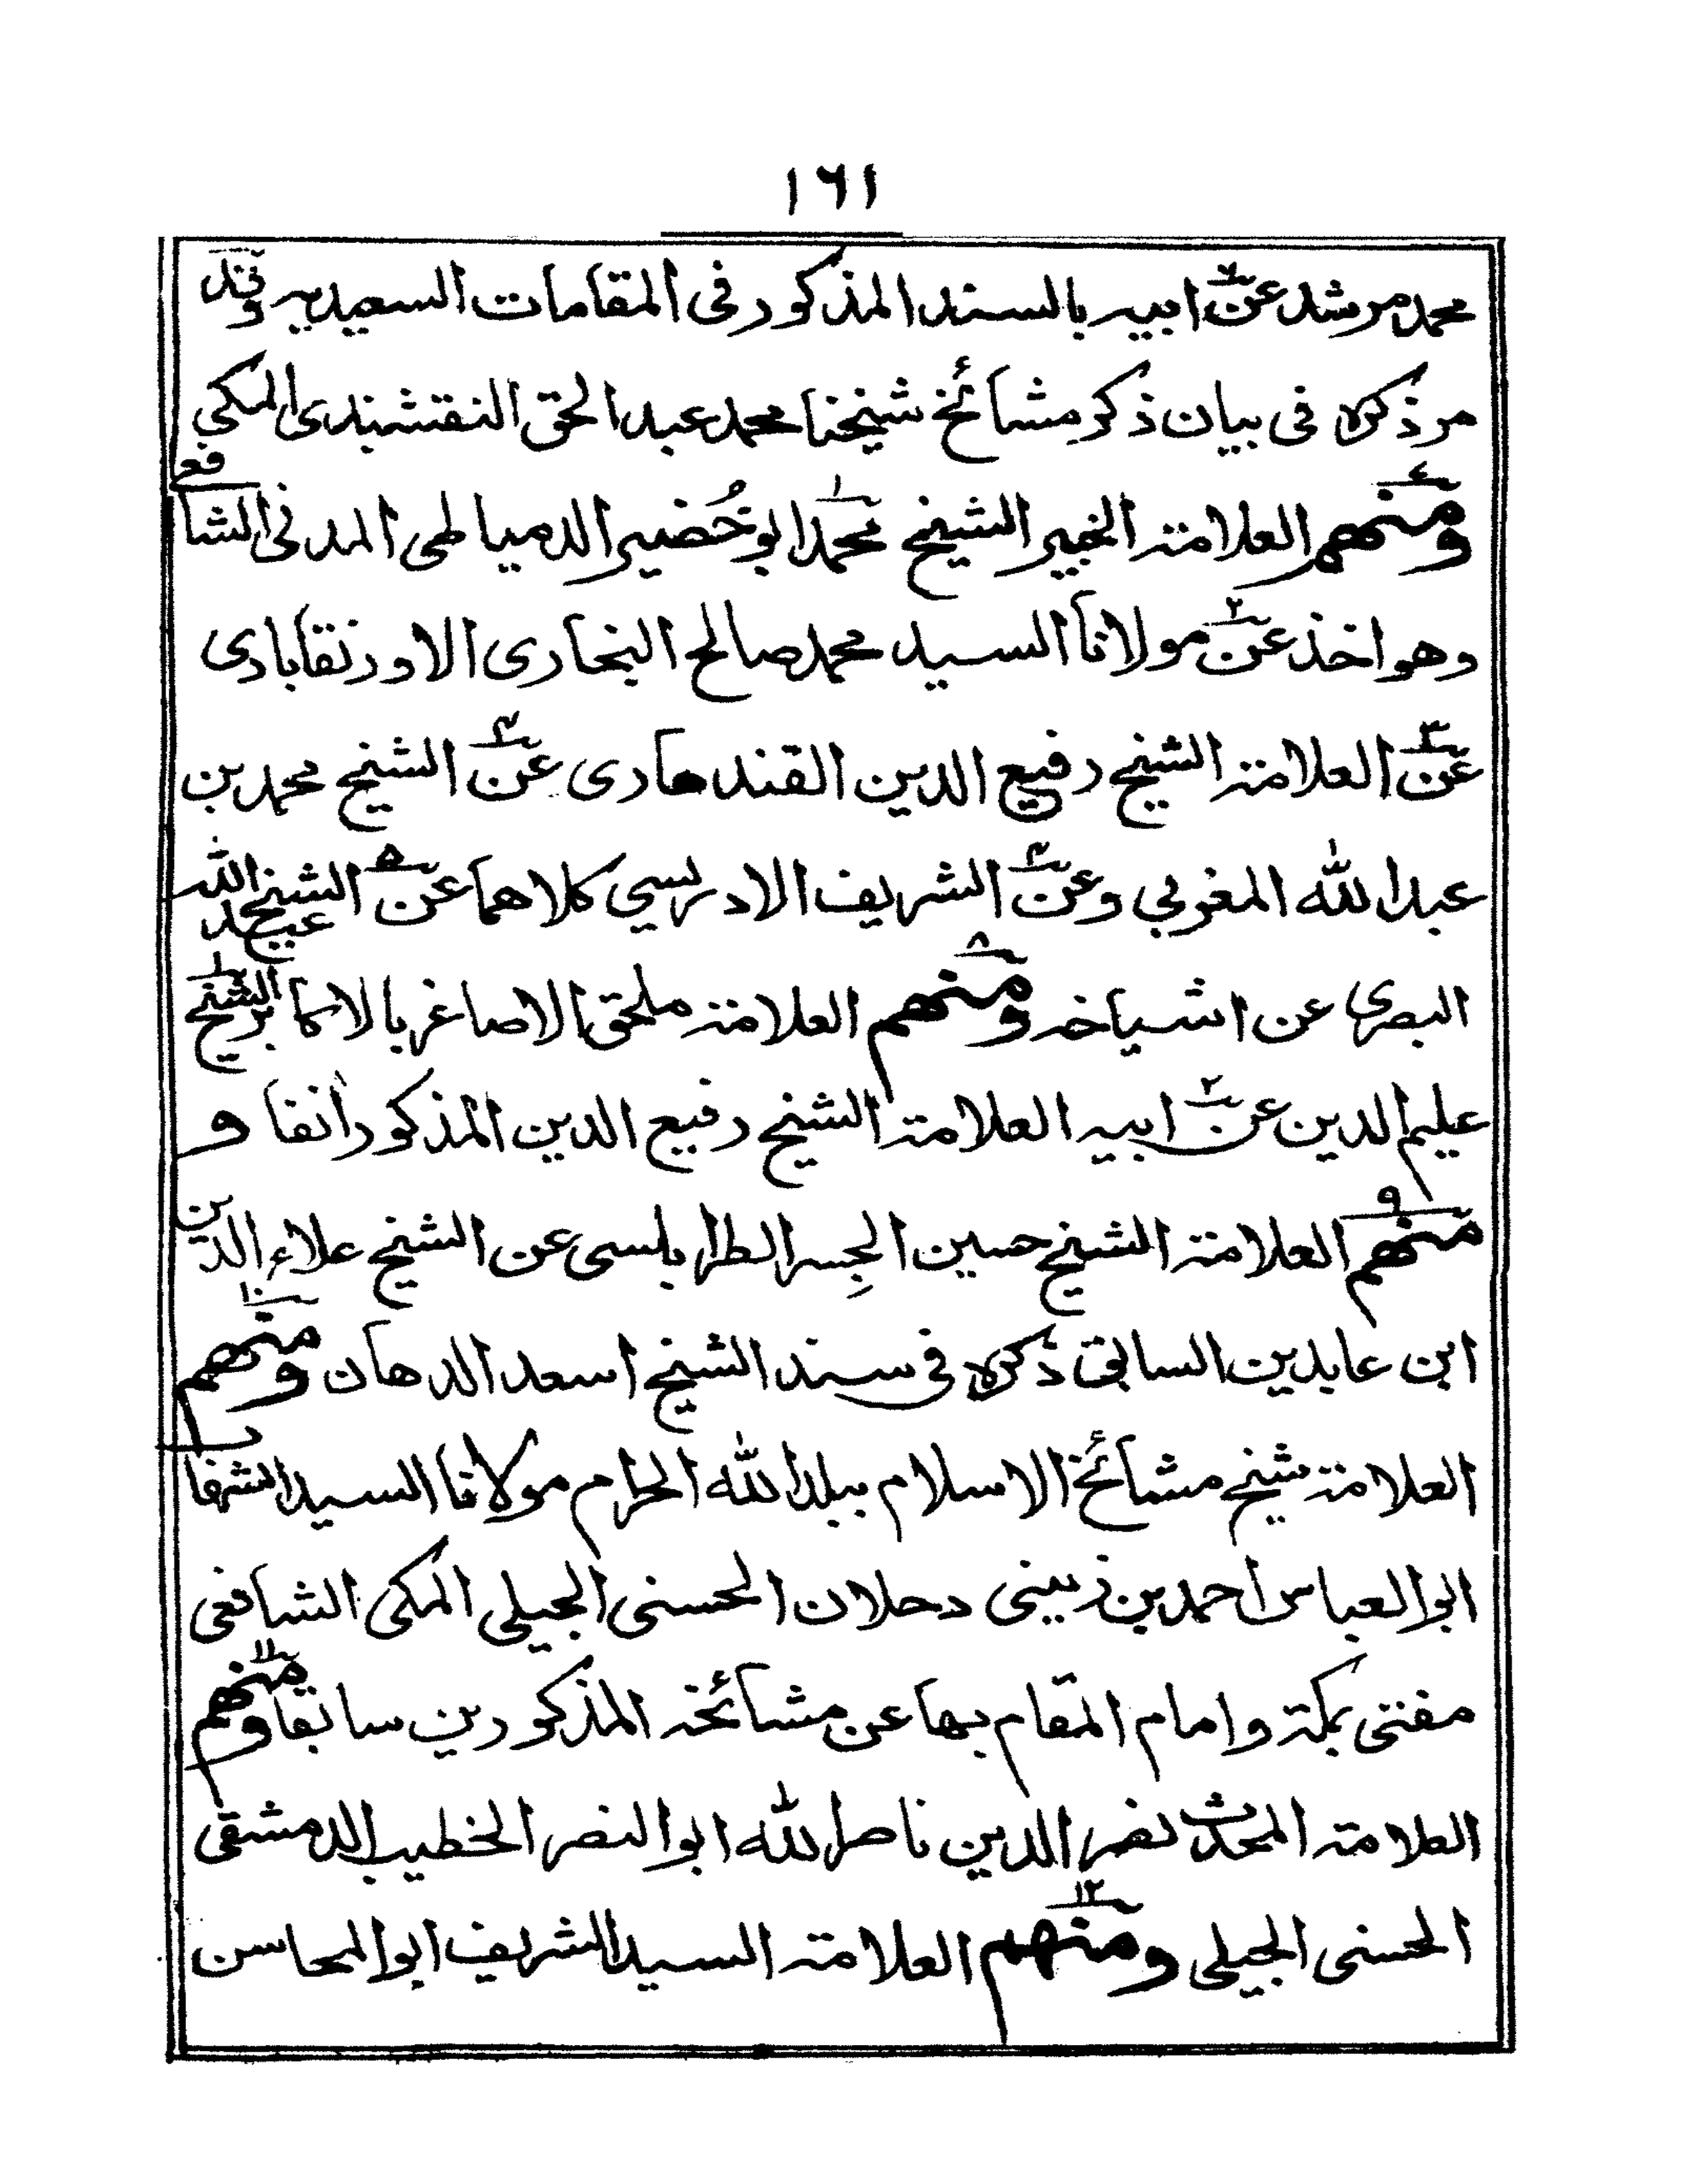 ١٦١
محمد مرشد عن ابيه بالسند المذكور فى المقامات السعيديه وقد
مر ذكره فى بيان ذكر مشائخ شيخنا محمد عبد الحق النقشبندى المكى
ومنهم العلامة الخبير الشيخ محمد ابو خُضير الدمياطى المدنى الشافعى
وهو اخذ عن مولانا السيد محمد صالح البخارى الاورنقابادى
عن العلامة الشيخ رفيع الدين القندهارى عن الشيخ محمد بن
عبد الله المغربي وعن الشريف الادريسي كلاهما عن الشيخ عبد الله
البصرى عن اشياخه ومنهم العلامة ملحق الاصاغر بالاكابر الشيخ
عليم الدين عن ابيه العلامة الشيخ رفيع الدين المذكور آنفا و
منهم العلامة الشيخ حسين الجِسر الطرابلسى عن الشيخ علاء الدين
ابن عابدين السابق ذكره فى سند الشيخ اسعد الدهان ومنهم
العلامة شيخ مشائخ الاسلام ببلد الله الحرام مولانا السيد الشهاب
ابو العباس احمد بن زينى دحلان الحسنى الجيلى المكى الشافعى
مفتى بمكة وامام المقام بها عن مشائخه المذكورين سابقا ومنهم
العلامة المحدث نصر الدين ناصر الله ابو النصر الخطيب الدمشقى
الحسنى الجيلى ومنهم العلامة السيد الشريف ابو المحاسن